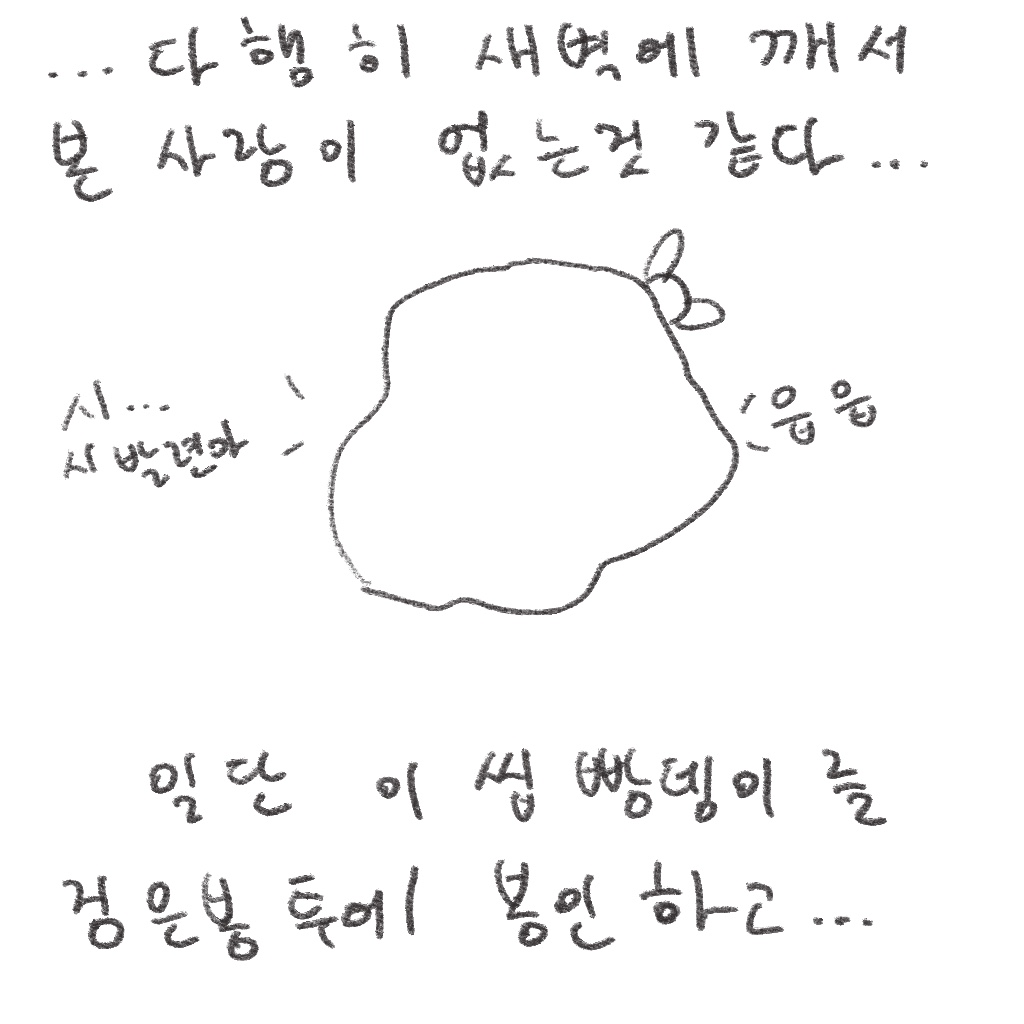 ... 다행히 새벽에 깨서
본 사람이 없는것 같다...
시...
시발련아
읍읍
일단 이 씹빵뎅이를
검은봉투에 봉인하고...